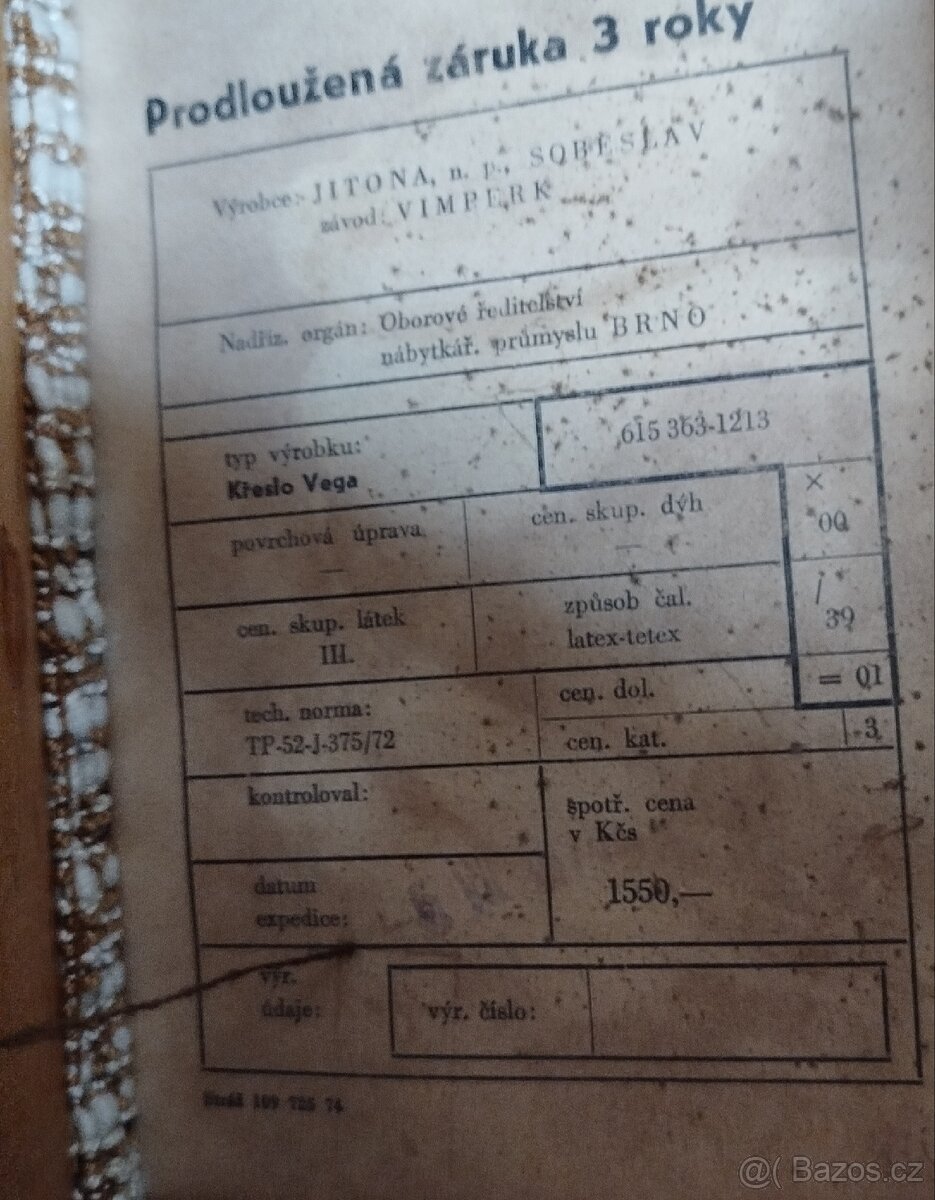 Prodloužená záruka 3 roky
Výrobce: JITONA, n. p., SOBĚSLAV
závod: VIMPERK
Nadříz. orgán: Oborové ředitelství
nábytkář. průmyslu BRNO
typ výrobku:
Křeslo Vega
615 363-1213
povrchová úprava
—
cen. skup. dýh
—
×
00
/
39
= 01
cen. skup. látek
III.
způsob čal.
latex-tetex
tech. norma:
TP-52-J-375/72
cen. dol.
cen. kat.
3
kontroloval:
spotř. cena
v Kčs
1550,—
datum
expedice:
výr.
údaje:
výr. číslo:
@( Bazos.cz